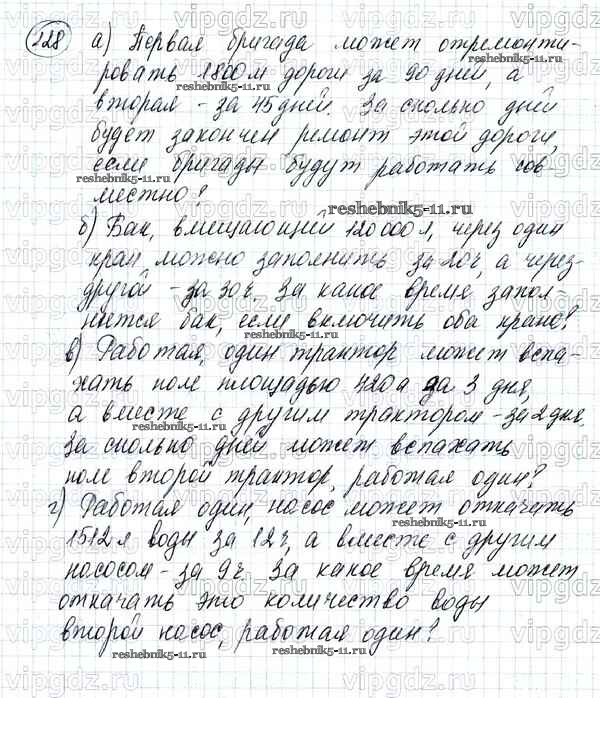 228 а) Первая бригада может отремонти-
ровать 1800 м дороги за 90 дней, а
reshebnik5-11.ru
вторая - за 45 дней. За сколько дней
будет закончен ремонт этой дороги,
если бригады будут работать сов-
местно?
reshebnik5-11.ru
б) Бак, вмещающий 120000 л, через один
кран можно заполнить за 20 ч, а через
другой - за 30 ч. За какое время запол-
нится бак, если включить оба крана?
reshebnik5-11.ru
в) Работая, один трактор может вспа-
хать поле площадью 420 а за 3 дня,
а вместе с другим трактором - за 2 дня.
reshebnik5-11.ru
За сколько дней может вспахать
поле второй трактор, работая один?
г) Работая один, насос может откачать
reshebnik5-11.ru
1512 л воды за 12 ч, а вместе с другим
насосом - за 9 ч. За какое время может
откачать это количество воды
второй насос, работая один?
reshebnik5-11.ru reshebnik5-11.ru
vipgdz.ru